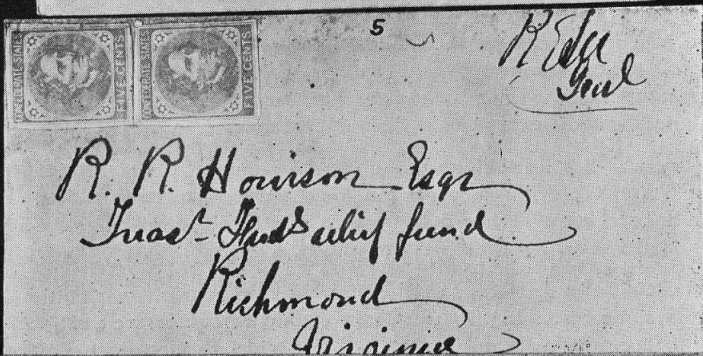 CONFEDERATE STATES FIVE CENTS CONFEDERATE STATES FIVE CENTS
5
R E Lee
Genl
R. R. Howison Esqr
Treasr relief fund
Richmond
Virginia